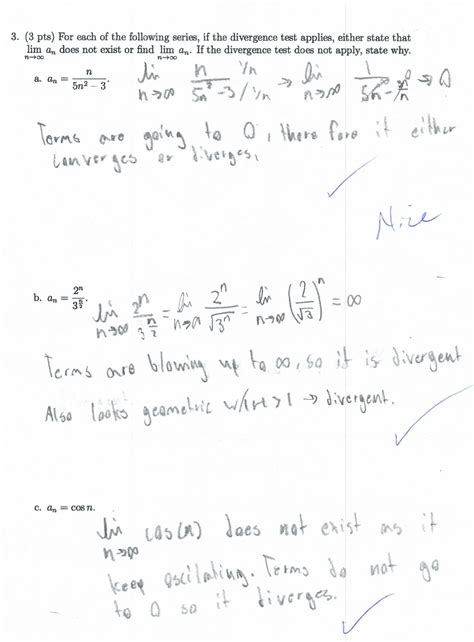 3. (3 pts) For each of the following series, if the divergence test applies, either state that
lim n→∞ aₙ does not exist or find lim n→∞ aₙ. If the divergence test does not apply, state why.
a. aₙ = n/(5n² − 3).
lim n→∞ n/(5n² − 3) 1/n / 1/n → lim n→∞ 1/(5n − 3/n) → 0
Terms are going to 0, there fore it either
converges or diverges.
Nice
b. aₙ = 2ⁿ/3^(n/2).
lim n→∞ 2ⁿ/3^(n/2) = lim n→∞ 2ⁿ/√3ⁿ = lim n→∞ (2/√3)ⁿ = ∞
Terms are blowing up to ∞, so it is divergent
Also looks geometric w/ |r| > 1 → divergent.
c. aₙ = cos n.
lim n→∞ cos(n) does not exist as it
keep oscilating. Terms do not go
to 0 so it diverges.